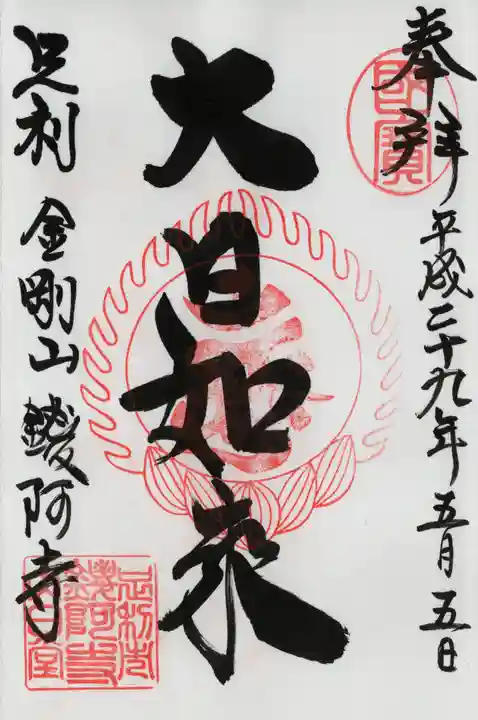 奉拝
平成二十九年五月五日
國寶
大日如来
足利 金剛山 鑁阿寺